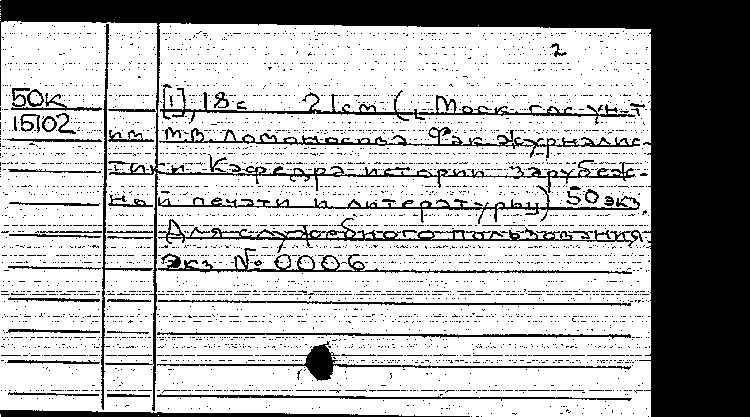 2
50к [1], 18с 21см (Моск гос ун-т
15102 им М.В. Ломоносова Фак журналис-
тики Кафедра истории зарубеж-
ной печати и литературы) 50 экз.
Для служебного пользования.
Экз № 0006